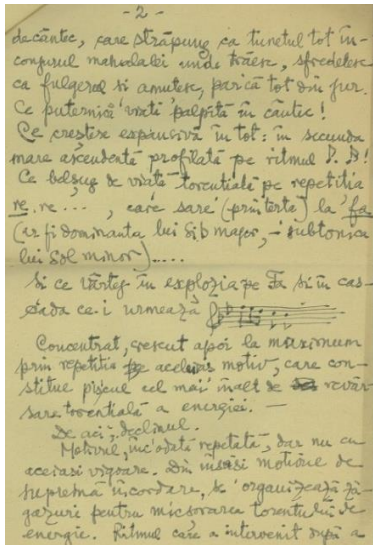 - 2 -
de cântec, care străpunge ca tunetul tot în-
conjurul mahalalei unde trăesc, sfredelesc
ca fulgerul și amuțesc, parcă tot din jur.
Ce puternică viață palpită în cântec!
Ce creștere expansivă în tot: în secunda
mare ascendentă profilată pe ritmul
Ce belșug de viață torențială pe repetiția
re, re ..., care sare (prin terță) la fa
(ar fi dominanta lui Sib major, - subtonica
lui Sol minor)....
Și ce vârtej în explozia pe Fa și în cas-
cada ce-i urmează
Concentrat, crescut apoi la maximum
prin repetiția aceluias motiv, care con-
stitue piscul cel mai înalt de revăr-
sare torențială a energiei. -
De aci, declinul.
Motivul, încodată repetată, dar nu cu
aceiași vigoare. Din însăși motivul de
supremă încordare, se organizează ză-
gazuri pentru micșorarea torentului de
energie. Ritmul care a intervenit după a